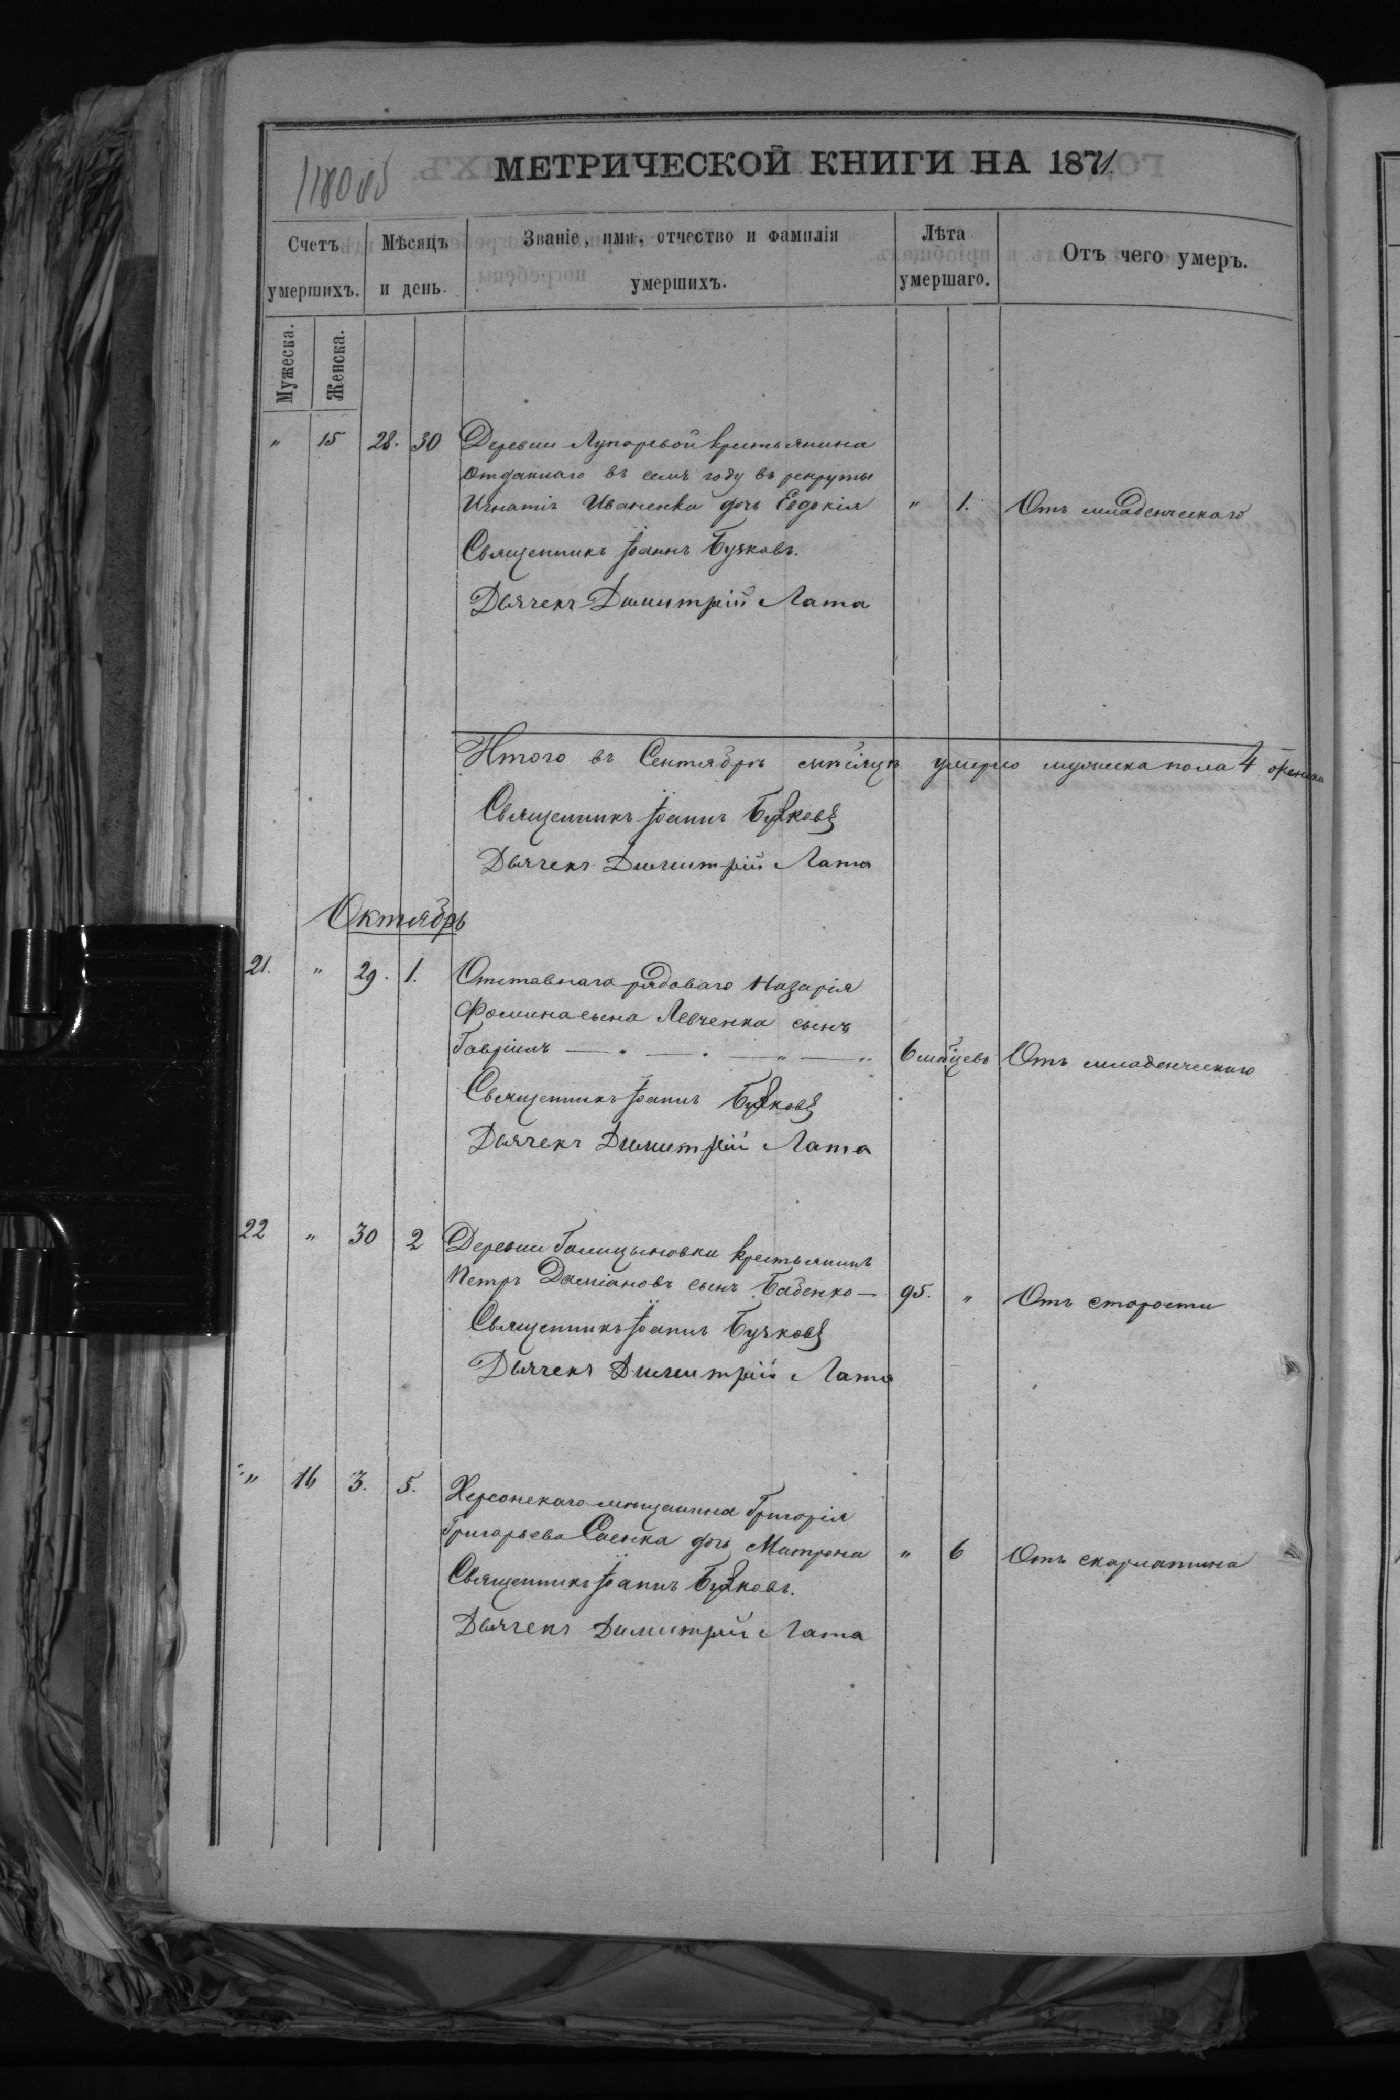 1180об
МЕТРИЧЕСКОЙ КНИГИ НА 1871.
Счетъ умершихъ. Мѣсяцъ и день. Званіе, имя, отчество и фамилія умершихъ. Лѣта умершаго. Отъ чего умеръ.
Мужеска. Женска.
" 15 28. 30 Деревни Лупаревой крестьянина
отданнаго въ семъ году въ рекруты
Игнатія Иваненка дочь Евдокія " 1. Отъ младенческаго
Священникъ Іоаннъ Бучковъ.
Дьячекъ Димитрій Лата
Итого въ Сентябрѣ мѣсяцѣ умерло мужеска пола 4 женска
Священникъ Іоаннъ Бучковъ
Дьячекъ Димитрій Лата
Октябрь
21. " 29. 1. Отставнаго рядоваго Назарія
Фомина сына Левченка сынъ
Гавріилъ — . — . — „ — „ 6 мѣсяцевъ Отъ младенческаго
Священникъ Іоаннъ Бучковъ
Дьячекъ Димитрій Лата
22 " 30 2 Деревни Галицыновки крестьянинъ
Петръ Даміановъ сынъ Бабенко — 95. " Отъ старости
Священникъ Іоаннъ Бучковъ
Дьячекъ Димитрій Лата
" 16 3. 5. Херсонскаго мѣщанина Григорія
Григорьева Саенка дочь Матрона " 6 Отъ скарлатина
Священникъ Іоаннъ Бучковъ.
Дьячекъ Димитрій Лата